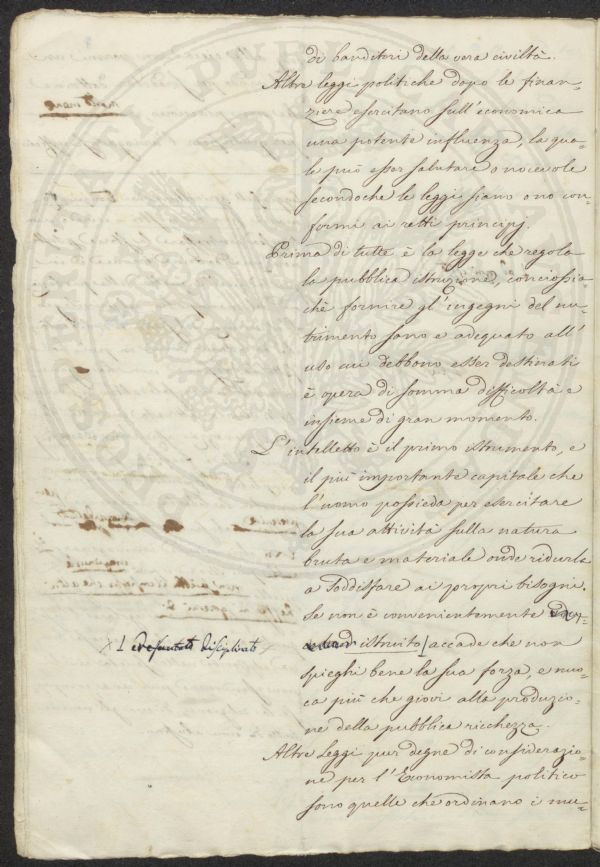 di banditori della vera civiltà.
Altre leggi politiche dopo le finan-
ziere esercitano sull'economica
una potente influenza, la qua-
le può esser salutare o nocevole
secondoche le leggi siano o no con-
formi ai retti principj.
Prima di tutte è la legge che regola
la pubblica istruzione, conciossia-
chè fornire gl'ingegni del nu-
trimento sano e adequato all'
uso cui debbono esser destinati
è opera di somma difficoltà e
insieme di gran momento.
L'intelletto è il primo istrumento, e
il più importante capitale che
l'uomo possieda per esercitare
la sua attività sulla natura
bruta e materiale onde ridurla
a soddisfare ai propri bisogni.
Se non è convenientemente
istruito / accade che non
disciplinato
spieghi bene la sua forza, e nuo-
ca più che giovi alla produzio-
ne della pubblica ricchezza.
Altre Leggi pur degne di considerazio-
ne per l'Economista politico
sono quelle che ordinano i mu-